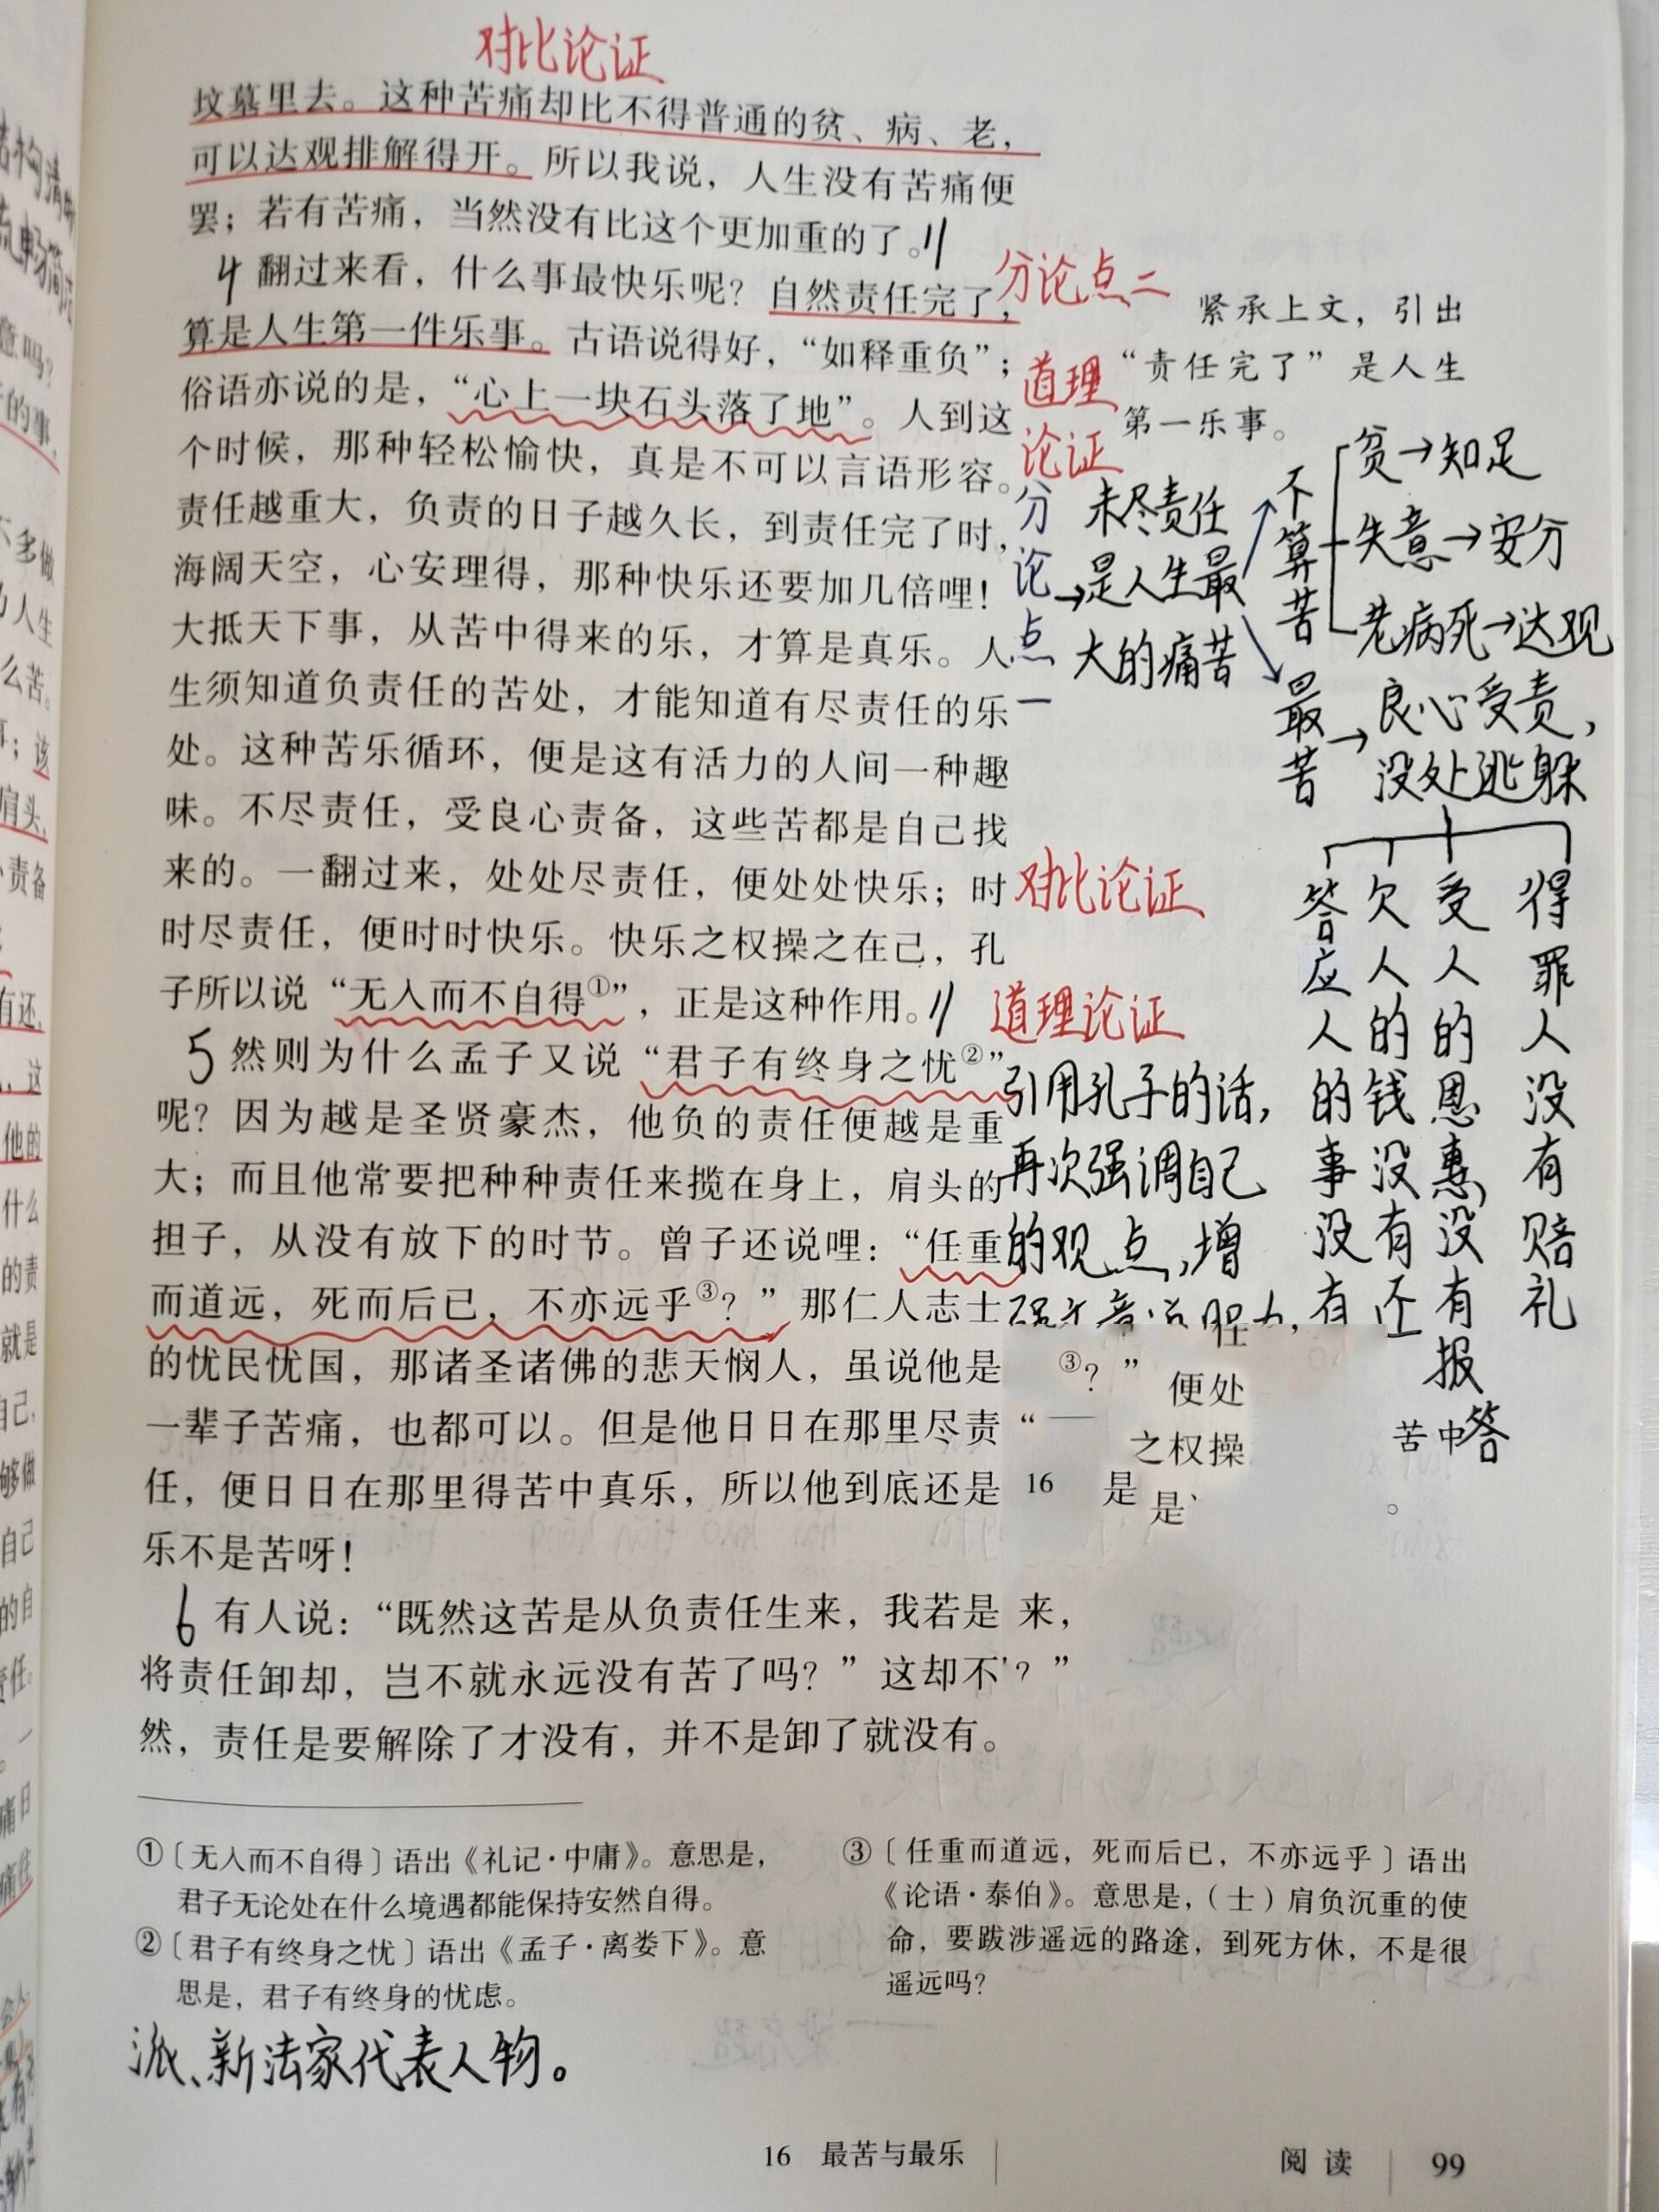 对比论证
坟墓里去。这种苦痛却比不得普通的贫、病、老，
可以达观排解得开。所以我说，人生没有苦痛便
罢；若有苦痛，当然没有比这个更加重的了。//
4 翻过来看，什么事最快乐呢？自然责任完了，
算是人生第一件乐事。古语说得好，“如释重负”；
俗语亦说的是，“心上一块石头落了地”。人到这
个时候，那种轻松愉快，真是不可以言语形容。
责任越重大，负责的日子越久长，到责任完了时，
海阔天空，心安理得，那种快乐还要加几倍哩！
大抵天下事，从苦中得来的乐，才算是真乐。人
生须知道负责任的苦处，才能知道有尽责任的乐
处。这种苦乐循环，便是这有活力的人间一种趣
味。不尽责任，受良心责备，这些苦都是自己找
来的。一翻过来，处处尽责任，便处处快乐；时
时尽责任，便时时快乐。快乐之权操之在己，孔
子所以说“无入而不自得①”，正是这种作用。//
5 然则为什么孟子又说“君子有终身之忧②”
呢？因为越是圣贤豪杰，他负的责任便越是重
大；而且他常要把种种责任来揽在身上，肩头的
担子，从没有放下的时节。曾子还说哩：“任重
而道远，死而后已，不亦远乎③？”那仁人志士
的忧民忧国，那诸圣诸佛的悲天悯人，虽说他是
一辈子苦痛，也都可以。但是他日日在那里尽责
任，便日日在那里得苦中真乐，所以他到底还是
乐不是苦呀！
6 有人说：“既然这苦是从负责任生来，我若是 来，
将责任卸却，岂不就永远没有苦了吗？”这却不 ？”
然，责任是要解除了才没有，并不是卸了就没有。
分论点二
紧承上文，引出
“责任完了”是人生
第一乐事。
道理
论证
分论点一
→未尽责任
是人生最
大的痛苦
不算苦
贫→知足
失意→安分
老病死→达观
最苦→良心受责，
没处逃躲
答应人的事没有
欠人的钱没有还
受人的恩惠没有报答
得罪人没有赔礼
对比论证
道理论证
引用孔子的话，
再次强调自己
的观点，增
③？”
便处
“一
之权操
16
是
是
苦中
。
①〔无入而不自得〕语出《礼记·中庸》。意思是，
君子无论处在什么境遇都能保持安然自得。
②〔君子有终身之忧〕语出《孟子·离娄下》。意
思是，君子有终身的忧虑。
③〔任重而道远，死而后已，不亦远乎〕语出
《论语·泰伯》。意思是，（士）肩负沉重的使
命，要跋涉遥远的路途，到死方休，不是很
遥远吗？
派、新法家代表人物。
16 最苦与最乐
阅读 99